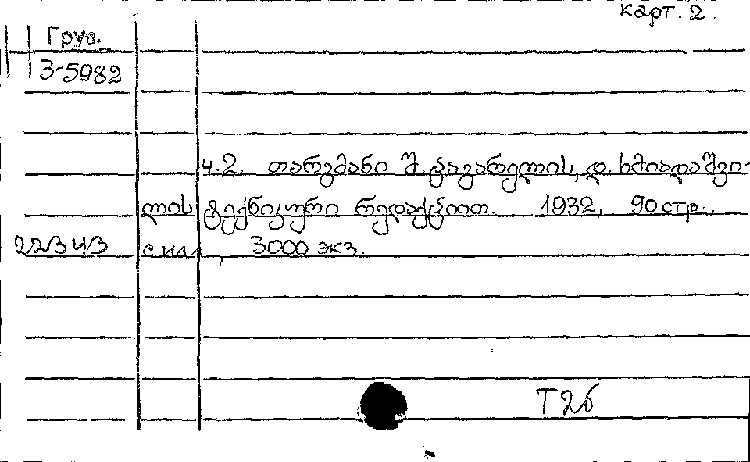 карт. 2.
Груз.
3-5982
ч.2. თარგმანი შ. ჭავარელის, დ. ხმიადაშვი-
ლის ტექნიკური რედაქციით. 1932, 90 стр.,
22343 с илл., 3000 экз.
Т2б